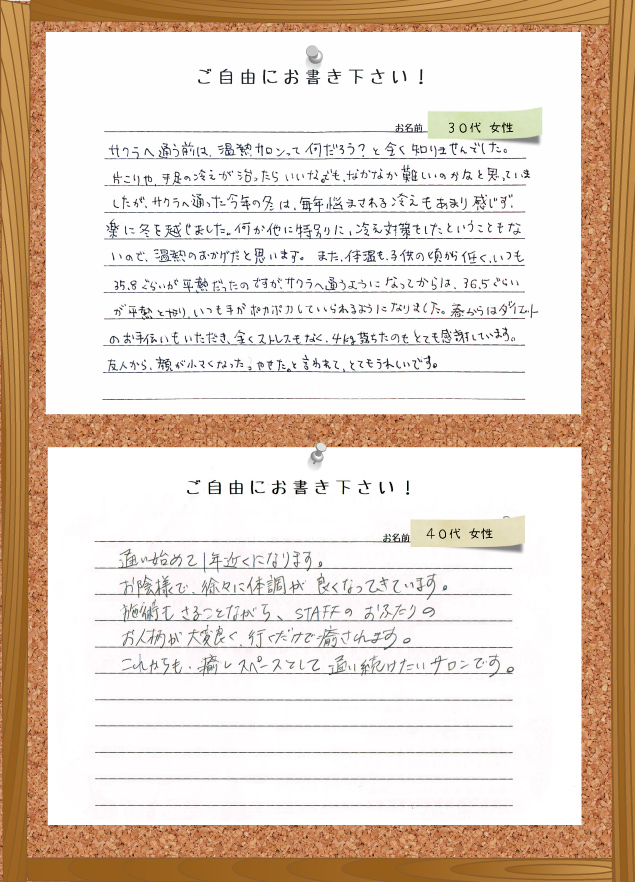 ご自由にお書き下さい！
お名前 30代 女性
サクラへ通う前は、温熱サロンって何だろう？と全く知りませんでした。
片こりや、手足の冷えが治ったらいいなぁも、なかなか難しいのかなと思っていま
したが、サクラへ通った今年の冬は、毎年悩まされる冷えもあまり感じず、
楽に冬を越せました。何か他に特別に、冷え対策をしたということもな
いので、温熱のおかげだと思います。また、体温も、子供の頃から低く、いつも
35.8ぐらいが平熱だったのですが、サクラへ通うようになってからは、36.5ぐらい
が平熱となり、いつも手がポカポカしていられるようになりました。春からはダイエット
のお手伝いもいただき、全くストレスもなく、4kg落ちたのもとても感謝しています。
友人から、顔が小さくなった。やせた。と言われて、とてもうれしいです。
ご自由にお書き下さい！
お名前 40代 女性
通い始めて1年近くになります。
お陰様で、徐々に体調が良くなってきています。
施術もさることながら、STAFFのおふたりの
お人柄が大変良く、行くだけで癒されます。
これからも、癒しスペースとして通い続けたいサロンです。